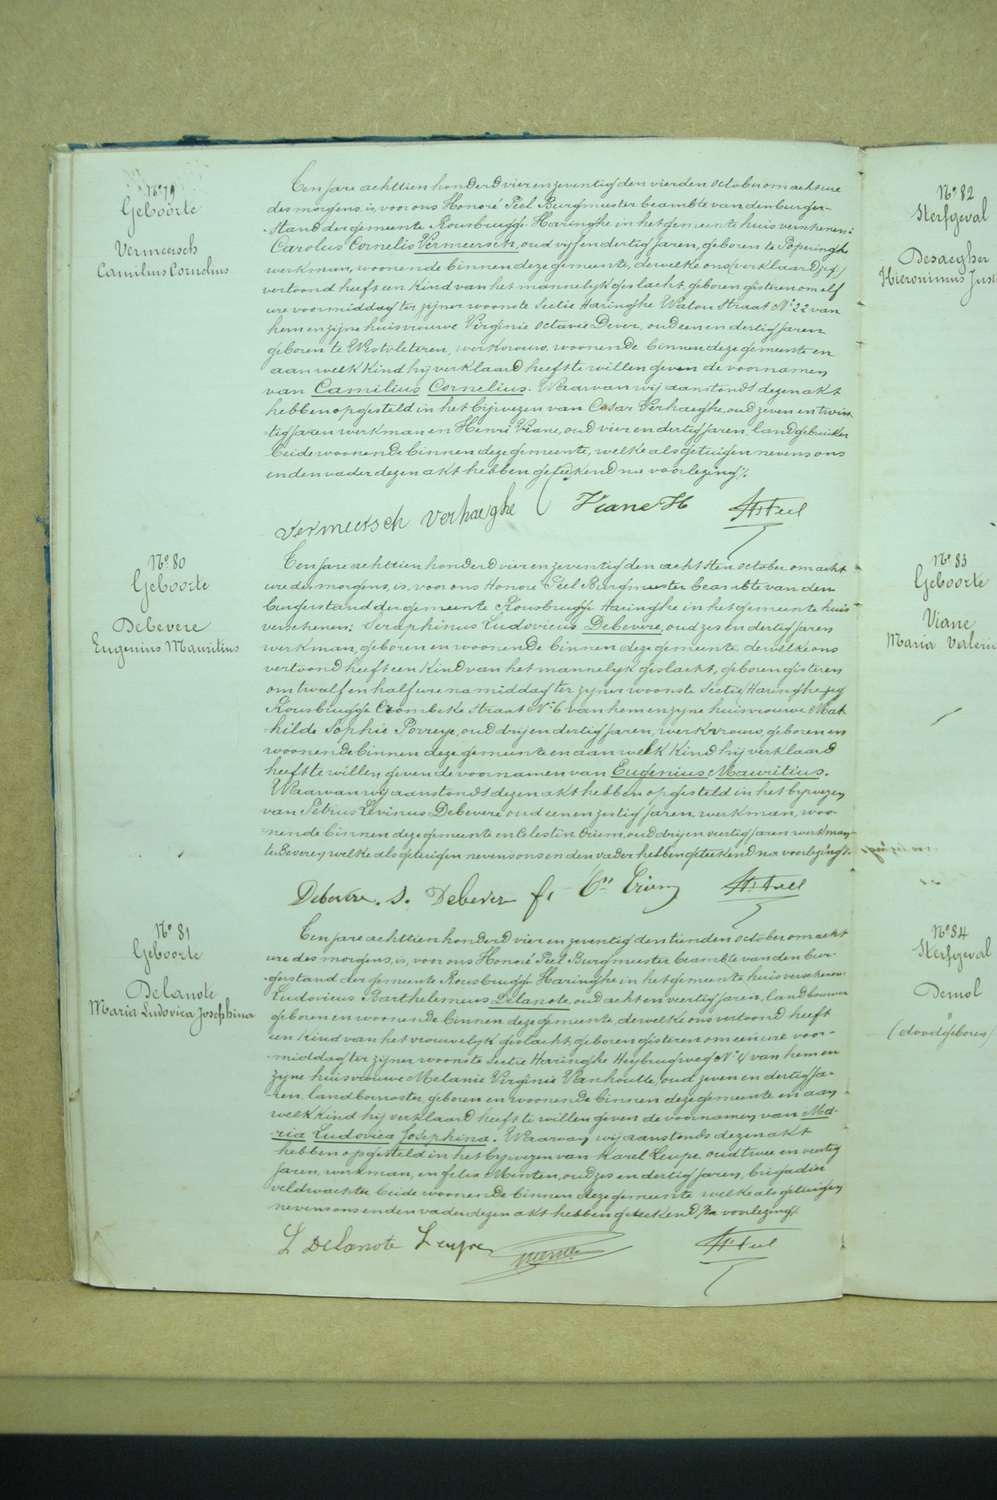 N° 79
Geboorte
Vermeersch
Camilius Cornelius
Ten jare achttien honderd vier en zeventig den vierden october om acht ure
des morgens, is voor ons Honoré Peel Burgmeester beambte van den burger-
stand der gemeente Rousbrugge Haringhe in het gemeente huis verschenen:
Carolus Cornelis Vermeersch, oud vyf en dertig jaren, geboren te Poperinghe
werkman, woonende binnen deze gemeente, dewelke ons (verklaard
vertoond heeft een kind van het mannelyk geslacht, geboren gisteren om elf
ure voormiddag ter zyner woonste Sectie Haringhe Watou Straat N° 22 van
hem en zyne huisvrouwe Virginie Octavie Dever, oud een en dertig jaren
geboren te Westvleteren, werkvrouw, woonende binnen deze gemeente en
aan welk kind hy verklaard heeft te willen geven de voornamen
van Camilius Cornelius. Waarvan wy aanstonds dezen akt
hebben opgesteld in het bywezen van Cesar Verhaeghe, oud zeven en twin-
tig jaren werkman en Henri Viane, oud vier en dertig jaren, landgebruiker
beide woonende binnen deze gemeente, welke als getuigen nevens ons
en den vader dezen akt hebben geteekend na voorlezing.
Vermeersch Verhaeghe Viane H H Peel
N° 80
Geboorte
Debevere
Eugenius Mauritius
Ten jare achttien honderd vier en zeventig den achtsten october om acht
ure des morgens, is, voor ons Honoré Peel Burgmeester beambte van den
burgerstand der gemeente Rousbrugge Haringhe in het gemeente huis
verschenen: Seraphinus Ludovicus Debevere, oud zes en dertig jaren
werkman, geboren en woonende binnen deze gemeente dewelke ons
vertoond heeft een kind van het mannelyk geslacht, geboren gisteren
om twalf en half ure namiddag ter zyner woonste Sectie Haringhe
Rousbrugge Crombeke Straat N° 6 van hem en zyne huisvrouwe Mat-
hilde Sophie Porreye, oud dry en dertig jaren, werkvrouw, geboren en
woonende binnen deze gemeente en aan welk kind hy verklaard
heeft te willen geven de voornamen van Eugenius Mauritius.
Waarvan wy aanstonds dezen akt hebben opgesteld in het bywezen
van Petrus Livinus Debevere oud een en zestig jaren, werkman, woo-
nende binnen deze gemeente en Celestin Driem, oud dry en veertig jaren werkman
te Beveren welke als getuigen nevens ons en den vader hebben geteekend na voorlezing.
Debevere. S. Debever H Peel
N° 81
Geboorte
Delanote
Maria Ludovica Josephina
Ten jare achttien honderd vier en zeventig den tienden october om acht
ure des morgens, is, voor ons Honoré Peel Burgmeester beambte van den bur-
gerstand der gemeente Rousbrugge Haringhe in het gemeente huis verschenen
Ludovicus Barthelemeus Delanote, oud acht en veertig jaren, landbouwer
geboren en woonende binnen deze gemeente, dewelke ons vertoond heeft
een kind van het vrouwelyk geslacht, geboren gisteren om een ure voor-
middag ter zyner woonste Sectie Haringhe Heybrugweg N° van hem en
zyne huisvrouwe Melanie Virginie Vanhoutte, oud zeven en dertig ja-
ren, landbouwster, geboren en woonende binnen deze gemeente en aan
welk kind hy verklaard heeft te willen geven de voornamen van Ma-
ria Ludovica Josephina. Waarvan wy aanstonds dezen akt
hebben opgesteld in het bywezen van Karel Leupe, oud twee en veertig
jaren, werkman, en Felix Menten, oud zes en dertig jaren, brigadier
veldwachter beide woonende binnen deze gemeente welke als getuigen
nevens ons en den vader dezen akt hebben geteekend, na voorlezing.
L Delanote Leupe H Peel
N° 82
Sterfgeval
Desaegher
Hieronimus Just
N° 83
Geboorte
Viane
Maria Valerie
N° 84
Sterfgeval
Demol
(doodgeboren)